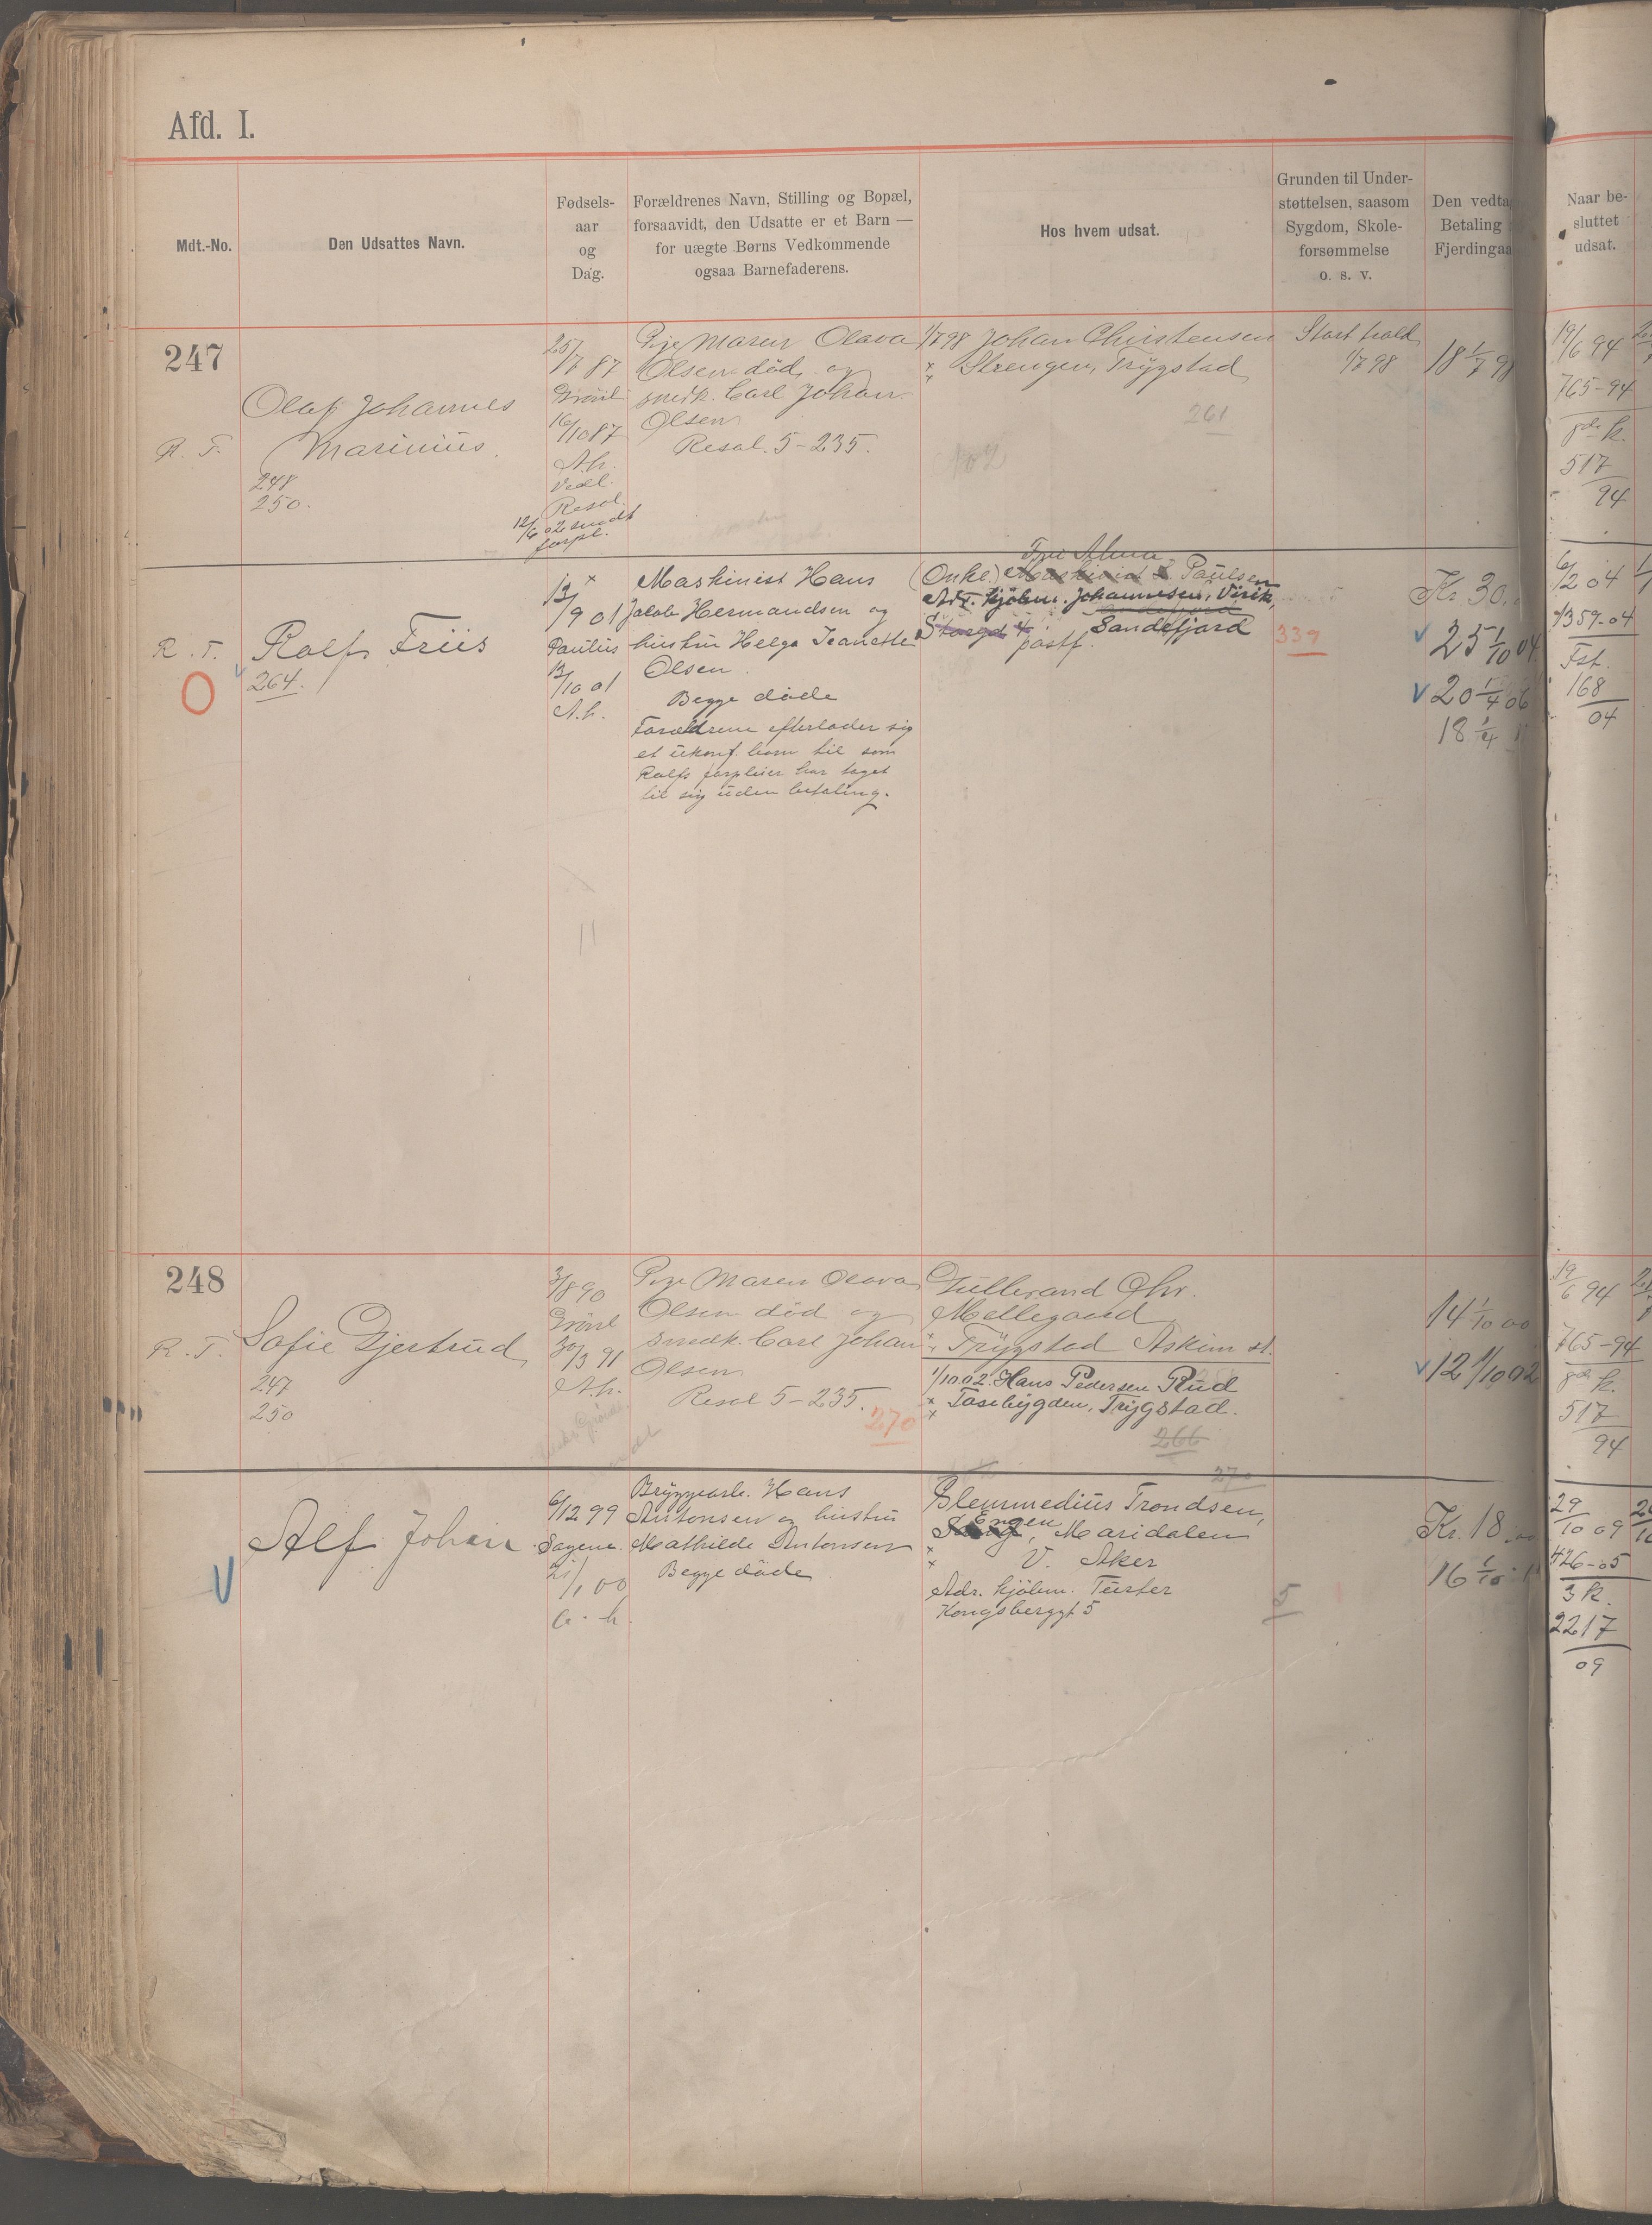 Afd. I.
Mdt.-No.
Den Udsattes Navn.
Fødsels-
aar
og
Dag.
Forældrenes Navn, Stilling og Bopæl,
forsaavidt, den Udsatte er et Barn —
for uægte Børns Vedkommende
ogsaa Barnefaderens.
Hos hvem udsat.
Grunden til Under-
støttelsen, saasom
Sygdom, Skole-
forsømmelse
o. s. v.
Den vedta
Betaling
Fjerdingaa
Naar be-
sluttet
udsat.
247
R. T.
Olaf Johannes
Marinius
248
250.
25/7 87
Grönl.
16/10 87
A. h.
Vedl.
Resol.
12/6 02 sendt
forpl.
Pige Maren Olava
Olsen död, og
smedk. Carl Johan
Olsen
Resol. 5-235.
1/7 98 Johan Christensen
Strengen, Trygstad
261
1/7 98
18 1/7 98
19/6 94
765-94
517
94
R. T.
Rolf Friis
264.
12/9 01
Paulus
13/10 01
A. h.
Maskinist Hans
Jakob Hermandsen og
hustru Helga Jeanette
Olsen
Begge döde
Forældrene efterlader sig
et ukonf. barn til som
Rolfs forpleier har taget
til sig uden betaling.
Fru Alma
(Onkel) Maskinist S. Paulsen
Adr. kjöbm. Johannesen, Virik,
Sandefjord
Storgd 4 Sandefjord
postf.
339
Kr. 30.
25 1/10 04
20 1/4 06
18 1/4
6/2 04
1359-04
Fst.
168
04
248
R. T.
Sofie Gjertrud
247
250
3/8 90
Grönl
30/3 91
A. h.
Pige Maren Olava
Olsen död og
smedk. Carl Johan
Olsen
Resol 5-235.
270
Gulbrand Chr.
Mellegaard
Trygstad Askim st.
1/10 02. Hans Pedersen Rud
Taosebygden, Trygstad.
266
270
14 1/10 00
12 1/10 02
19/6 94
765-94
517
94
Alf Johan
6/12 99
Sagene
21/1 00
Bryggearb. Hans
Antonsen og hustru
Mathilde Antonsen
Begge döde
Blemmedius Trondsen,
Engen
Maridalen
V. Aker
Adr. kjöbm. Tuster
Kongsberggt 5
5
Kr. 18.00
16 1/10
29/10 09
426-05
3 k.
2217
09